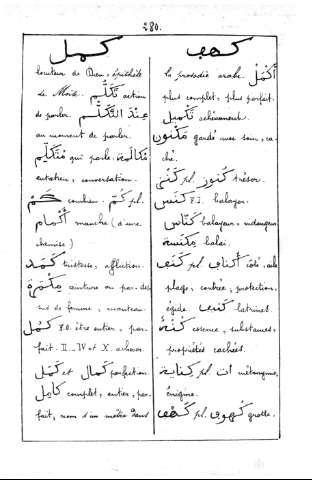 280.
كمل
كهف
locuteur de Dieu, épithète
de Moïse. تَكَلُّم action
de parler. عِنْدَ التَّكَلُّم
au moment de parler.
مُتَكَلِّم qui parle. مُكَالَمَة
entretien, conversation.
كَمْ combien. كُمّ pl.
أَكْمَام manche (d'une
chemise)
كَمَد tristesse, affliction.
ceinture ou par-des
sus de femme, manteau.
كَمُلَ F.O. être entier, par-
fait. II_IV et X. achever.
كَمَل et كَمَال perfection.
كَامِل complet, entier, par-
fait, nom d'un mètre dans
la prosodie arabe. أَكْمَلُ
plus complet, plus parfait.
تَكْمِيل achèvement.
مَكْنُون gardé avec soin, ca-
ché.
كَنْز pl. كُنُوز trésor.
كَنَسَ F.I. balayer.
كَنَّاس balayeur, vidangeur.
مِكْنَسَة balai.
كَنَف pl. أَكْنَاف côté, aile
plage, contrée, protection,
égide. latrines.
كُنْه essence, substance,
propriétés cachées.
كِنَايَة pl. ات métonymie,
énigme.
كَهْف pl. كُهُوف grotte.